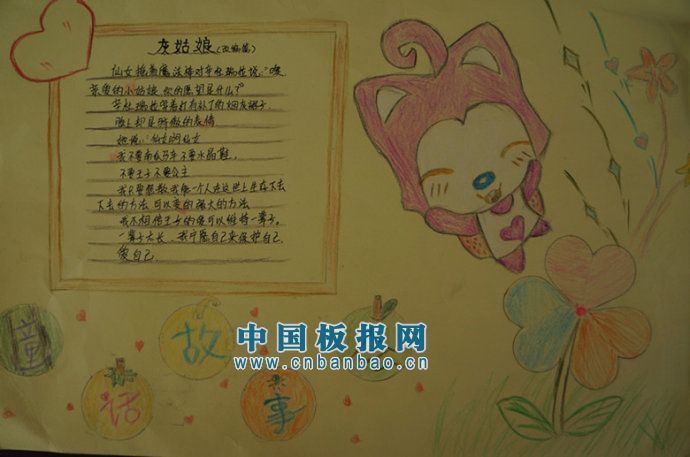 灰姑娘(改编篇)
仙女挥着魔法棒对辛杜瑞拉说:“嗳
亲爱的小姑娘,你的愿望是什么?”
辛杜瑞拉穿着打有补丁的烟灰裙子
脸上却是骄傲的表情
她说:“仙女啊仙女
我不要南瓜马车不要水晶鞋,
不要王子不要公主
我只要您教我像一个人在这世上生存下去
下去的方法,可以变的强大的方法
我不相信王子的爱可以维持一辈子。
一辈子太长,我宁愿自己来保护自己
爱自己.
童
话
故
事
中国板报网
www.cnbanbao.cn